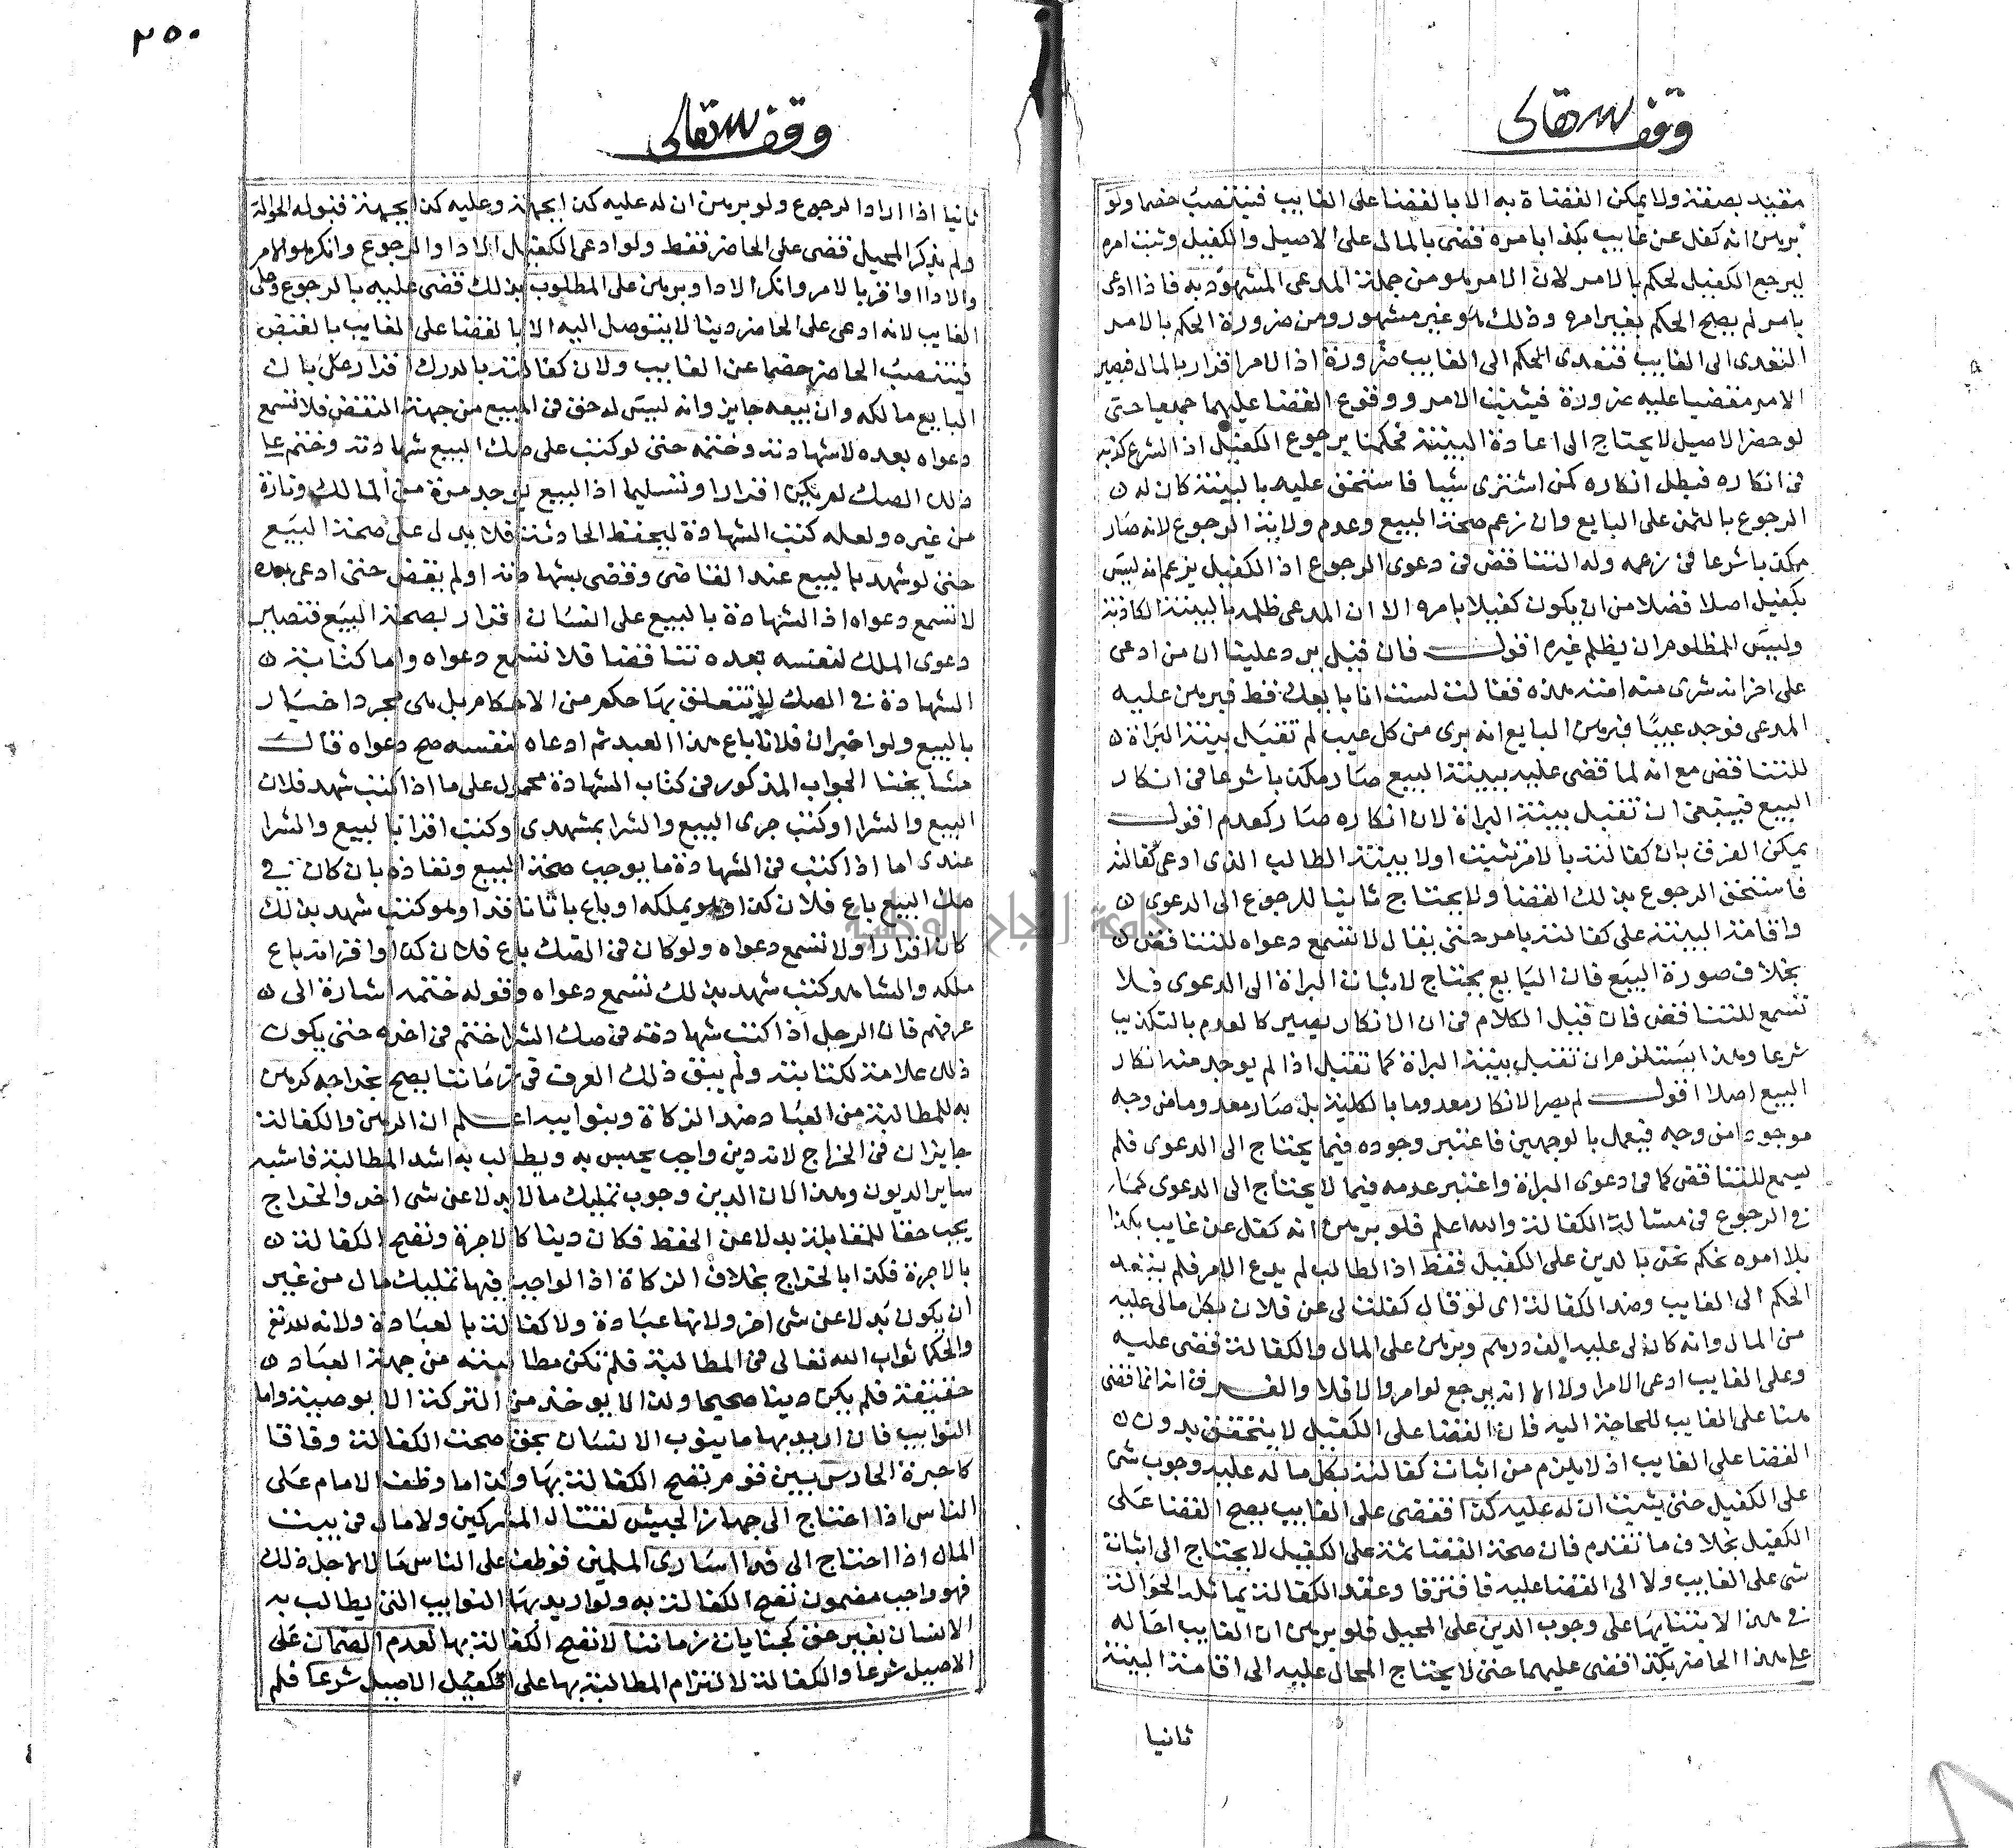 وقف لله تعالى
مقيد بصفة ولا يمكن القضاة به الا بالقضا على الغايب فينتصب خصما ولو
برهن انه كفل عن غايب بكذا بامره قضى بالمال على الاصيل والكفيل وثبت امره
ليرجع الكفيل لحكم بالامر لان الامر هو من جملة المدعى المشهود به فاذا ادعى
بامر لم يصح الحكم بغير امره وذلك هو غير مشهور ومن ضرورة الحكم بالامر
التعدى الى الغايب فتعدى الحكم الى الغايب ضرورة اذ الامر اقرار بالمال فيصير
الامر مقضيا عليه ضرورة فيثبت الامر ووقوع القضا عليهما جميعا حتى
لو حضر الاصيل لا يحتاج الى اعادة البينة فحكمنا برجوع الكفيل اذ الشرع كذبه
فى انكاره فبطل انكاره كمن اشترى شيا فاستحق عليه بالبينة كان له
الرجوع بالثمن على البايع وان زعم صحة البيع وعدم ولاية الرجوع لانه صار
مكذبا شرعا فى زعمه وله التناقض فى دعوى الرجوع اذ الكفيل يزعم انه ليس
بكفيل اصلا فضلا من ان يكون كفيلا بامره الا ان المدعى ظلمه بالبينة الكاذبة
وليس للمظلوم ان يظلم غيره اقول فان قيل يرد علينا ان من ادعى
على اخر انه شرى منه امته هذه فقال لست انا بايعك قط فبرهن عليه
المدعى فوجد عيبا فبرهن البايع انه برى من كل عيب لم تقبل بينة البراة
للتناقض مع انه لما قضى عليه ببينة البيع صار مكذبا شرعا فى انكار
البيع فينبغى ان تقبل بينة البراة لان انكاره صار كعدم اقول
يمكن الفرق بان كفالته بالامر ثبت اولا ببينة الطالب الذى ادعى كفالته
فاستحق الرجوع بذلك القضا ولا يحتاج ثانيا للرجوع الى الدعوى
واقامة البينة على كفالته بامر حتى يقال لا تسمع دعواه للتناقض
بخلاف صورة البيع فان البايع يحتاج لاثبات البراة الى الدعوى فلا
تسمع للتناقض فان قيل الكلام فى ان الانكار يصير كالعدم بالتكذيب
شرعا وهذا يستلزم ان تقبل بينة البراة كما تقبل اذا لم يوجد منه انكار
البيع اصلا اقول لم يصر الانكار معدوما بالكلية بل صار معدوما من وجه
موجودا من وجه فيعمل بالوجهين فاعتبر وجوده فيما يحتاج الى الدعوى فلم
يسمع للتناقض كما فى دعوى البراة واعتبر عدمه فيما لا يحتاج الى الدعوى كما
فى الرجوع فى مسالة الكفالة والله اعلم فلو برهن انه كفل عن غايب بكذا
بلا امره نحكم نحن بالدين على الكفيل فقط اذ الطالب لم يدع الامر فلم يتعد
الحكم الى الغايب وضد الكفالة اى لو قال كفلت لى عن فلان بكل مالى عليه
من المال وانه كان لى عليه الف درهم وبرهن على المال والكفالة قضى عليه
وعلى الغايب ادعى الامر اولا الا انه يرجع لو امر والا فلا والفرق انه انما قضى
هنا على الغايب للحاجة اليه فان القضا على الكفيل لا يتحقق بدون
القضا على الغايب اذ لا يلزم من اثبات كفالته بكل ما له عليه وجوب شى
على الكفيل حتى يثبت ان له عليه كذا فقضى على الغايب يصح القضا على
الكفيل بخلاف ما تقدم فان صحة القضا ثمة على الكفيل لا يحتاج الى اثبات
شى على الغايب ولا الى القضا عليه فافترقا وعقد الكفالة يماثله الحوالة
فى هذا الابتنايها على وجوب الدين على المحيل فلو برهن ان الغايب احاله
على هذا الحاضر بكذا قضى عليهما حتى لا يحتاج المحال عليه الى اقامة البينة
ثانيا
٢٥٠
وقف لله تعالى
ثانيا اذا اراد الرجوع ولو برهن ان له عليه كذا بجهة وعليه كذا بجهة قبوله الحوالة
ولم يذكر المحيل قضى على الحاضر فقط ولو ادعى الكفيل الادا والرجوع وانكر هو الامر
والادا او اقر بالامر وانكر الادا وبرهن على المطلوب بذلك قضى عليه بالرجوع وعلى
الغايب لانه ادعى على الحاضر دينا لا يتوصل اليه الا بالقضا على الغايب بالقبض
فينتصب الحاضر خصما عن الغايب ولان كفالته بالدرك اقرار على بان
البايع مالكه وان بيعه جايز وانه ليس له حق فى المبيع من جهة النقض فلا تسمع
دعواه بعده لا شهادته وختمه حتى لو كتب على صك البيع شهادته وختم على
ذلك الصك لم يكن اقرارا وتسليما اذ البيع يوجد مرة من المالك وتارة
من غيره ولعله كتب الشهادة ليحفظ الحادثة فلا يدل على صحة البيع
حتى لو شهد بالبيع عند القاضى وقضى بشهادته او لم يقض حتى ادعى بعده
لا تسمع دعواه اذ الشهادة بالبيع على انسان اقرار بصحة البيع فتصير
دعوى الملك لنفسه بعده تناقضا فلا تسمع دعواه واما كتابة
الشهادة فى الصك لا تتعلق بها حكم من الاحكام بل هى مجرد اخبار
بالبيع ولو اخبر ان فلانا باع هذا العبد ثم ادعاه لنفسه صح دعواه قال
مشايخنا الجواب المذكور فى كتاب الشهادة محمول على ما اذا كتب شهد فلان
البيع والشرا او كتب جرى البيع والشرا بمشهدى او كتب اقرا بالبيع والشرا
عندى اما اذا كتب فى الشهادة ما يوجب صحة البيع ونفاذه بان كان فى
صك البيع باع فلان كذا وهو يملكه او باع باتا نافذا وهو كتب شهد بذلك
كان اقرارا ولا تسمع دعواه ولو كان فى الصك باع فلان كذا او اقر انه باع
ملكه والشاهد كتب شهد بذلك تسمع دعواه وقوله ختمه اشارة الى
عرفهم فان الرجل اذا كتب شهادته فى صك الشرا ختم فى اخره حتى يكون
ذلك علامة لكتابته ولم يبق ذلك العرف فى زماننا يصح بخراجه كرهن
به للمطالبة من العباد ضد الزكاة وبنوايبه اعلم ان الرهن والكفالة
جايزان فى الخراج لانه دين واجب يحبس به ويطالب به اشد المطالبة فاشبه
ساير الديون وهذا لان الدين وجوب تمليك مال بدلا عن شى اخر والخراج
يجب حقا للمقابلة بدلا عن الحفظ فكان دينا كالاجرة وتصح الكفالة
بالاجرة فكذا بالخراج بخلاف الزكاة اذ الواجب فيها تمليك مال من غير
ان يكون بدلا عن شى اخر ولانها عبادة ولا كفالة بالعبادة ولانه
والحكم ثواب الله تعالى فى المطالبة فلم تكن مطالبته من جهة العباد
حقيقة فلم يكن دينا صحيحا ولذا لا يوخذ من التركة الا بوصية واما
النوايب فان اريد بها ما ينوب الانسان بحق صحت الكفالة وفاقا
كاجرة الحارس بين قوم تصح الكفالة بها وكذا ما وظف الامام على
الناس اذا احتاج الى جهاز الجيش لقتال المشركين ولا مال فى بيت
المال اذا احتاج الى فدا اسارى المسلمين فوظف على الناس مالا لاجل ذلك
فهو واجب مضمون تصح الكفالة به ولو اريد بها النوايب التى يطالب به
الانسان بغير حق كجنايات زماننا لا تصح الكفالة بها لعدم الضمان على
الاصيل شرعا والكفالة لالتزام المطالبة بها على الكفيل الاصيل شرعا فلم
جامعة النجاح الوطنية